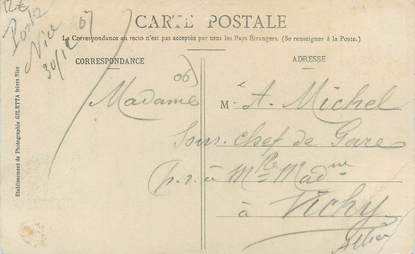 CARTE POSTALE
La Correspondance au recto n'est pas acceptée par tous les Pays Étrangers. (Se renseigner à la Poste.)
CORRESPONDANCE
ADRESSE
Nice
Madame
M A. Michel
Sous chef de Gare
à
à Vichy
Allier
Etablissement de Photographie GILETTA frères Nice